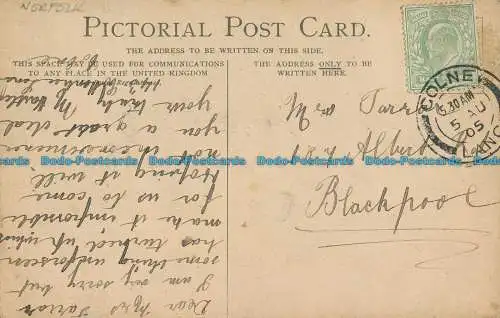 NORFOLK
PICTORIAL POST CARD.
THE ADDRESS TO BE WRITTEN ON THIS SIDE.
THIS SPACE MAY BE USED FOR COMMUNICATIONS
TO ANY PLACE IN THE UNITED KINGDOM
THE ADDRESS ONLY TO BE
WRITTEN HERE.
Dear Mrs Farrar
I am very sorry but
something unforseen
has turned up which
make it impossible
for us to come
Hoping it will
not inconvenience
you a great deal
Yours truly M
Colne
Mrs Farrar
Albert
Blackpool
COLNE
5.30 AM
5 AU
05
LANC
Dodo-Postcards Dodo-Postcards Dodo-Postcards Dodo-Postcards Dodo-Postcards